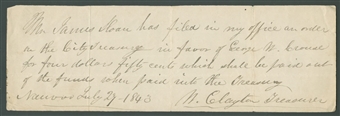 Mr James Sloan has filed in my office an order
on the City Treasury in favor of George W. Crouse
for four dollars fifty cents which shall be paid out
of the funds when paid into the Treasury
Nauvoo July 29 1843 W. Clayton Treasurer